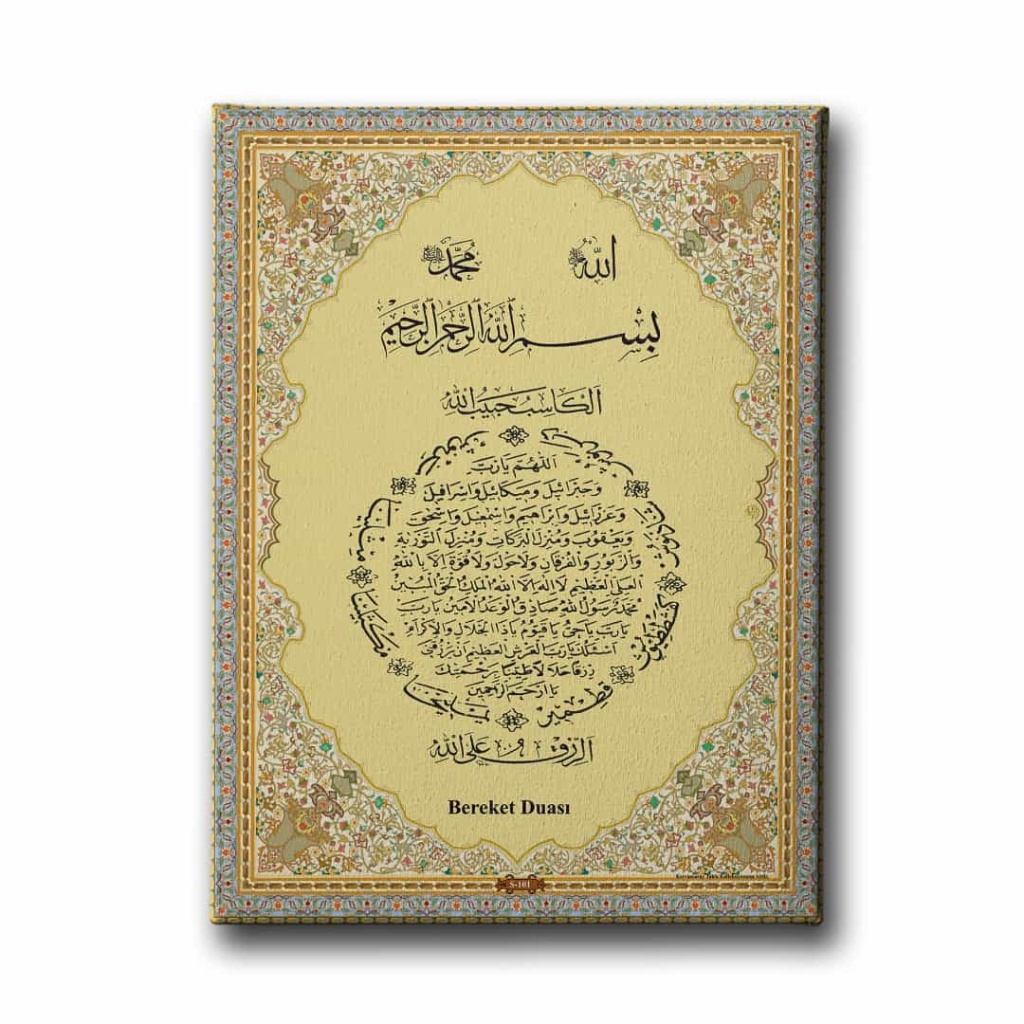 الله محمد
بسم الله الرحمن الرحيم
الكاسب حبيب الله
اللهم يا رب
وجبرائيل وميكائيل واسرافيل
وعزرائيل وابراهيم واسمعيل واسحق
ويعقوب ومنزل البركات ومنزل التورية
والزبور والفرقان ولا حول ولا قوة الا بالله
العلي العظيم لا اله الا الله الملك الحق المبين
محمد رسول الله صادق الوعد الامين يا رب
يا رب يا حي يا قيوم يا ذا الجلال والاكرام
اسئلك يا رب العرش العظيم ان ترزقني
رزقا حلالا طيبا برحمتك
يا ارحم الراحمين
يمليخا
مكثلينا
مثلينا
مرنوش
دبرنوش
شاذنوش
كفشططيوش
قطمير
الرزق على الله
Bereket Duası
S-101